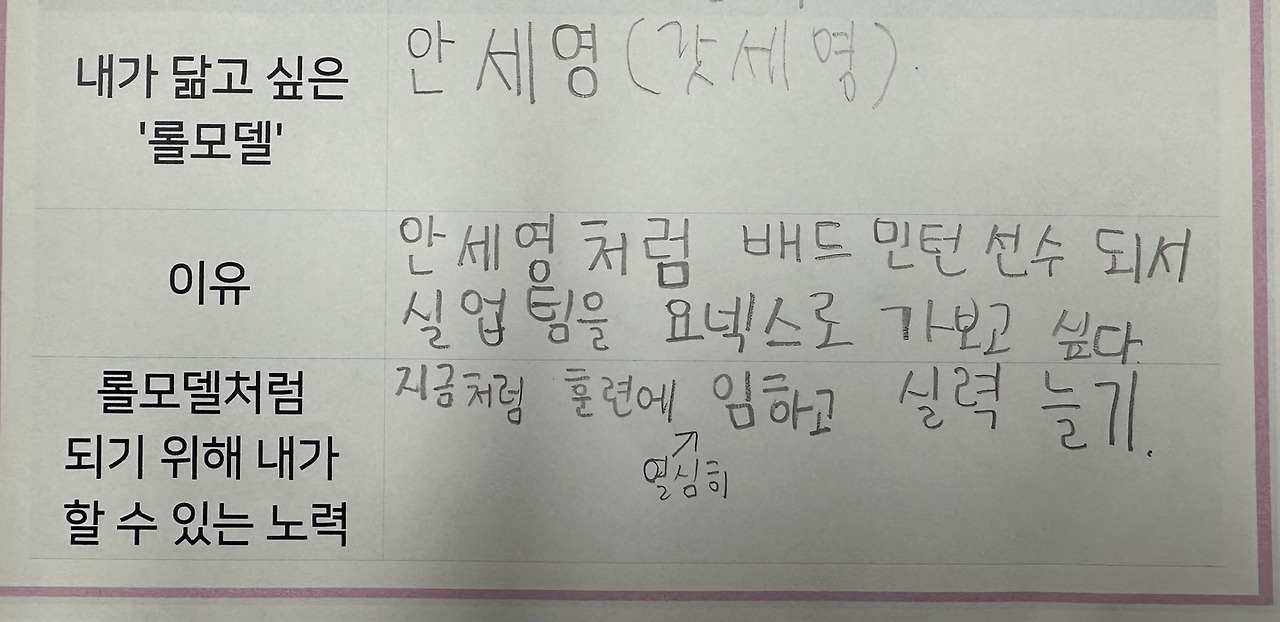 내가 닮고 싶은
'롤모델'
안세영(갓세영).
이유
안세영처럼 배드민턴 선수 되서
실업팀을 요넥스로 가보고 싶다.
롤모델처럼
되기 위해 내가
할 수 있는 노력
지금처럼 훈련에 임하고 실력 늘기.
열심히